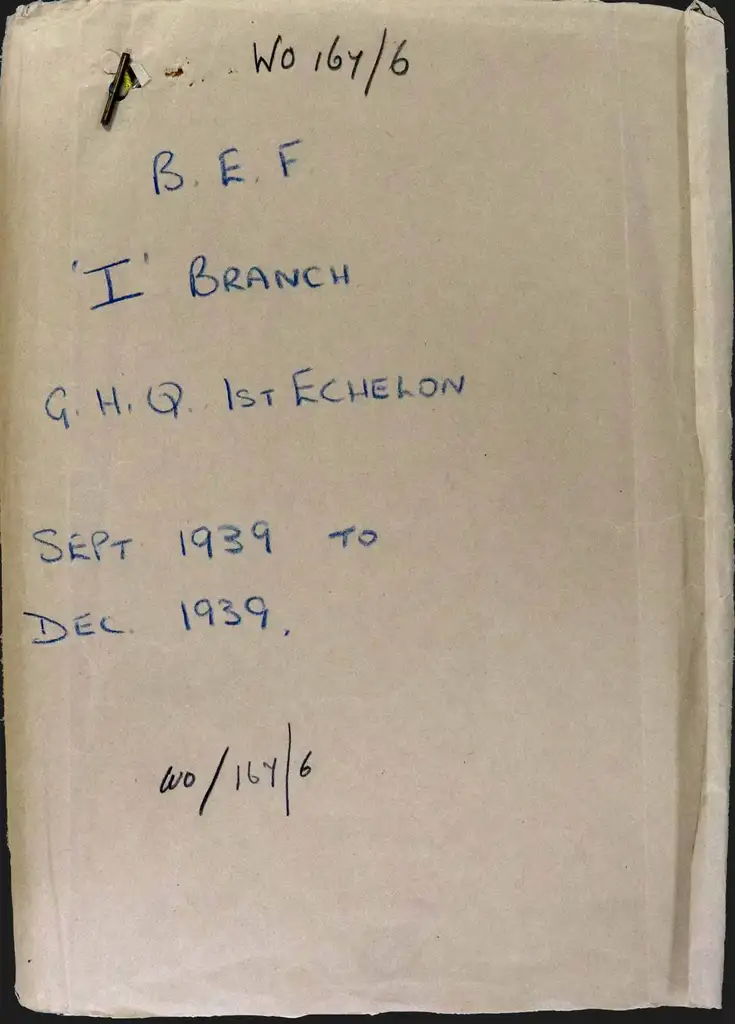 WO 167/6
B. E. F
'I' BRANCH
G. H. Q. 1ST ECHELON
SEPT 1939 TO
DEC. 1939.
WO/167/6